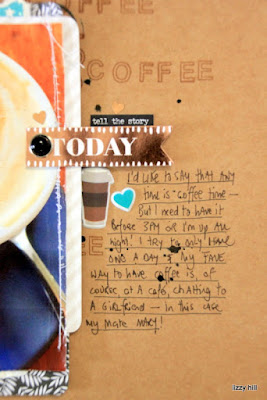 COFFEE
COFFEE
tell the story
TODAY
I'd like to say that any
time is "coffee time" —
But I need to have it
Before 3pm or I'm up all
night! I try to only have
one a day & my fave
way to have coffee is, of
course at a café, chatting to
a girlfriend — in this case
my mate Mary!
lizzy hill